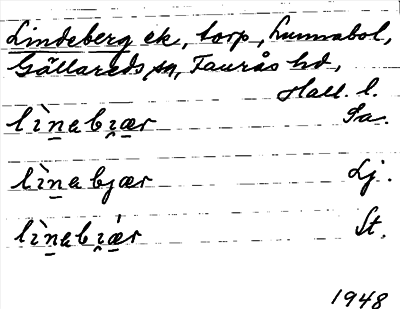 Lindeberg ek, torp, Lunnabol,
Gällareds sn, Faurås hd,
Hall. l.
lìnabi̯ær Sa.
lìnabjær Lj.
lìnabi̯ǽr St.
1948